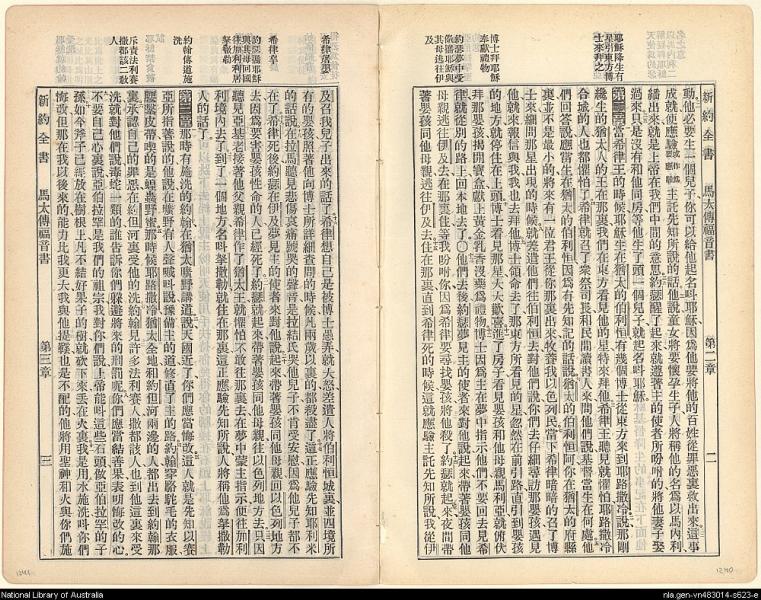 新約全書 馬太傳福音書 第二章 二
耶穌降生有
星引東方博
士來拜之
博士拜耶穌
奉獻禮物
約瑟夢中受
徵攜耶穌與
其母逃往伊
及
動他必要生一個兒子你可以給他起名叫耶穌因爲他要將他的百姓從罪惡裏救出來這事
成就使應驗主託先知所說的話他說童女將要懷孕生子人將稱他的名爲以馬內利
繙出來就是上帝在我們中間的意思約瑟醒了起來就遵著主的使者所吩咐的將他妻子娶
過來只是沒有和他同房等他生了頭一個兒子就起名叫耶穌
第二章當希律王的時候耶穌生在猶太的伯利恒有幾個博士從東方來到耶路撒冷說那剛
纔生的猶太人的王在那裏我們在東方看見他的星特來拜他希律王聽見就懼怕耶路撒冷
合城的人也都懼怕了希律就召了衆祭司長和民間讀書人來問他們說基督當生在何處他
們回答說應當生在猶太的伯利恒因爲有先知記的話說猶太的伯利恒阿你在猶太的府縣
裏並不是最小的將來有一位君王從你那裏出來牧養我以色列民當下希律暗暗的召了博
士來細問那星出現的時候就差遣他們往伯利恒去對他們說你們去仔細尋訪那嬰孩遇見
他就來報信與我我也去拜他博士領命去了那東方所看見的星忽然在前引路直引到嬰孩
的地方就停住在上頭博士看見那星大大歡喜進了房子看見嬰孩和他母親馬利亞就俯伏
拜那嬰孩揭開寶盒獻上黃金乳香沒藥爲禮物博士因爲主在夢中指示他們不要回去見希
律就從別的路上回本地去了〇他們去後約瑟夢見主的使者來對他說起來帶著嬰孩同他
母親逃往伊及去在那裏住等我吩咐你因爲希律要尋找嬰孩將他殺了約瑟就起來夜間帶
著嬰孩同他母親逃往伊及住在那裏直到希律死的時候這就應驗主託先知所說我從伊
希律居孩
希律卒
約瑟攜耶穌
與其母回國
往加利利居
拏撒勒
約翰傳道施
洗
斥責法利賽
撒都該二教
人
及召我兒子出來的話了希律想自己是被博士愚弄就大怒差遣人將伯利恒城裏並四境所
有的嬰孩照著他向博士所詳細查問的時候凡兩歲以裏的都殺盡了這正應驗先知耶利米
的話說在拉馬聽見悲傷哀痛號哭的聲音是拉結氏哭他兒子不肯受安慰因爲他兒子都不
在了希律死後約瑟在伊及夢見主的使者來對他說起來帶著嬰孩同他母親回以色列地方
去因爲要害嬰孩性命的人已經死了約瑟就起來帶著嬰孩同他母親往以色列地方去只因
聽見亞基老接著他父親希律作了猶太王就懼怕不敢往那裏去在夢中蒙主指示便往加利
利境內去了到了一個地方名叫拏撒勒就住在那裏這正應驗先知所說人將稱他爲拏撒勒
人的話了
第三章那時有施洗的約翰在猶太曠野講道說天國近了你們應當悔改這人就是先知以賽
亞所指著說的他說在曠野有人聲喊叫說豫備主的道修直了主的路約翰穿駱駝毛的衣服
腰繫皮帶喫的是蝗蟲野蜜那時候耶路撒冷猶太全地和約但河兩邊的人都出去到約翰那
裏承認自己的罪惡在約但河裏受他的洗約翰見許多法利賽人撒都該人也到他這裏來受
洗就對他們說毒蛇一類的誰告訴你們躱避將來的刑罰呢你們應當結善果表明悔改的心
不要自己心裏說亞伯拉罕是我們的祖宗我對你們說上帝能叫這些石頭做亞伯拉罕的子
孫如今斧子已經放在樹根上凡不結好果子的樹就砍下來丟在火裏我是用水施洗叫你們
悔改但那在我以後來的能力比我更大我與他提鞋也是不配的他將用聖神和火與你們施
新約全書 馬太傳福音書 第三章 三
1241
1240
National Library of Australia
nla.gen-vn483014-s623-e